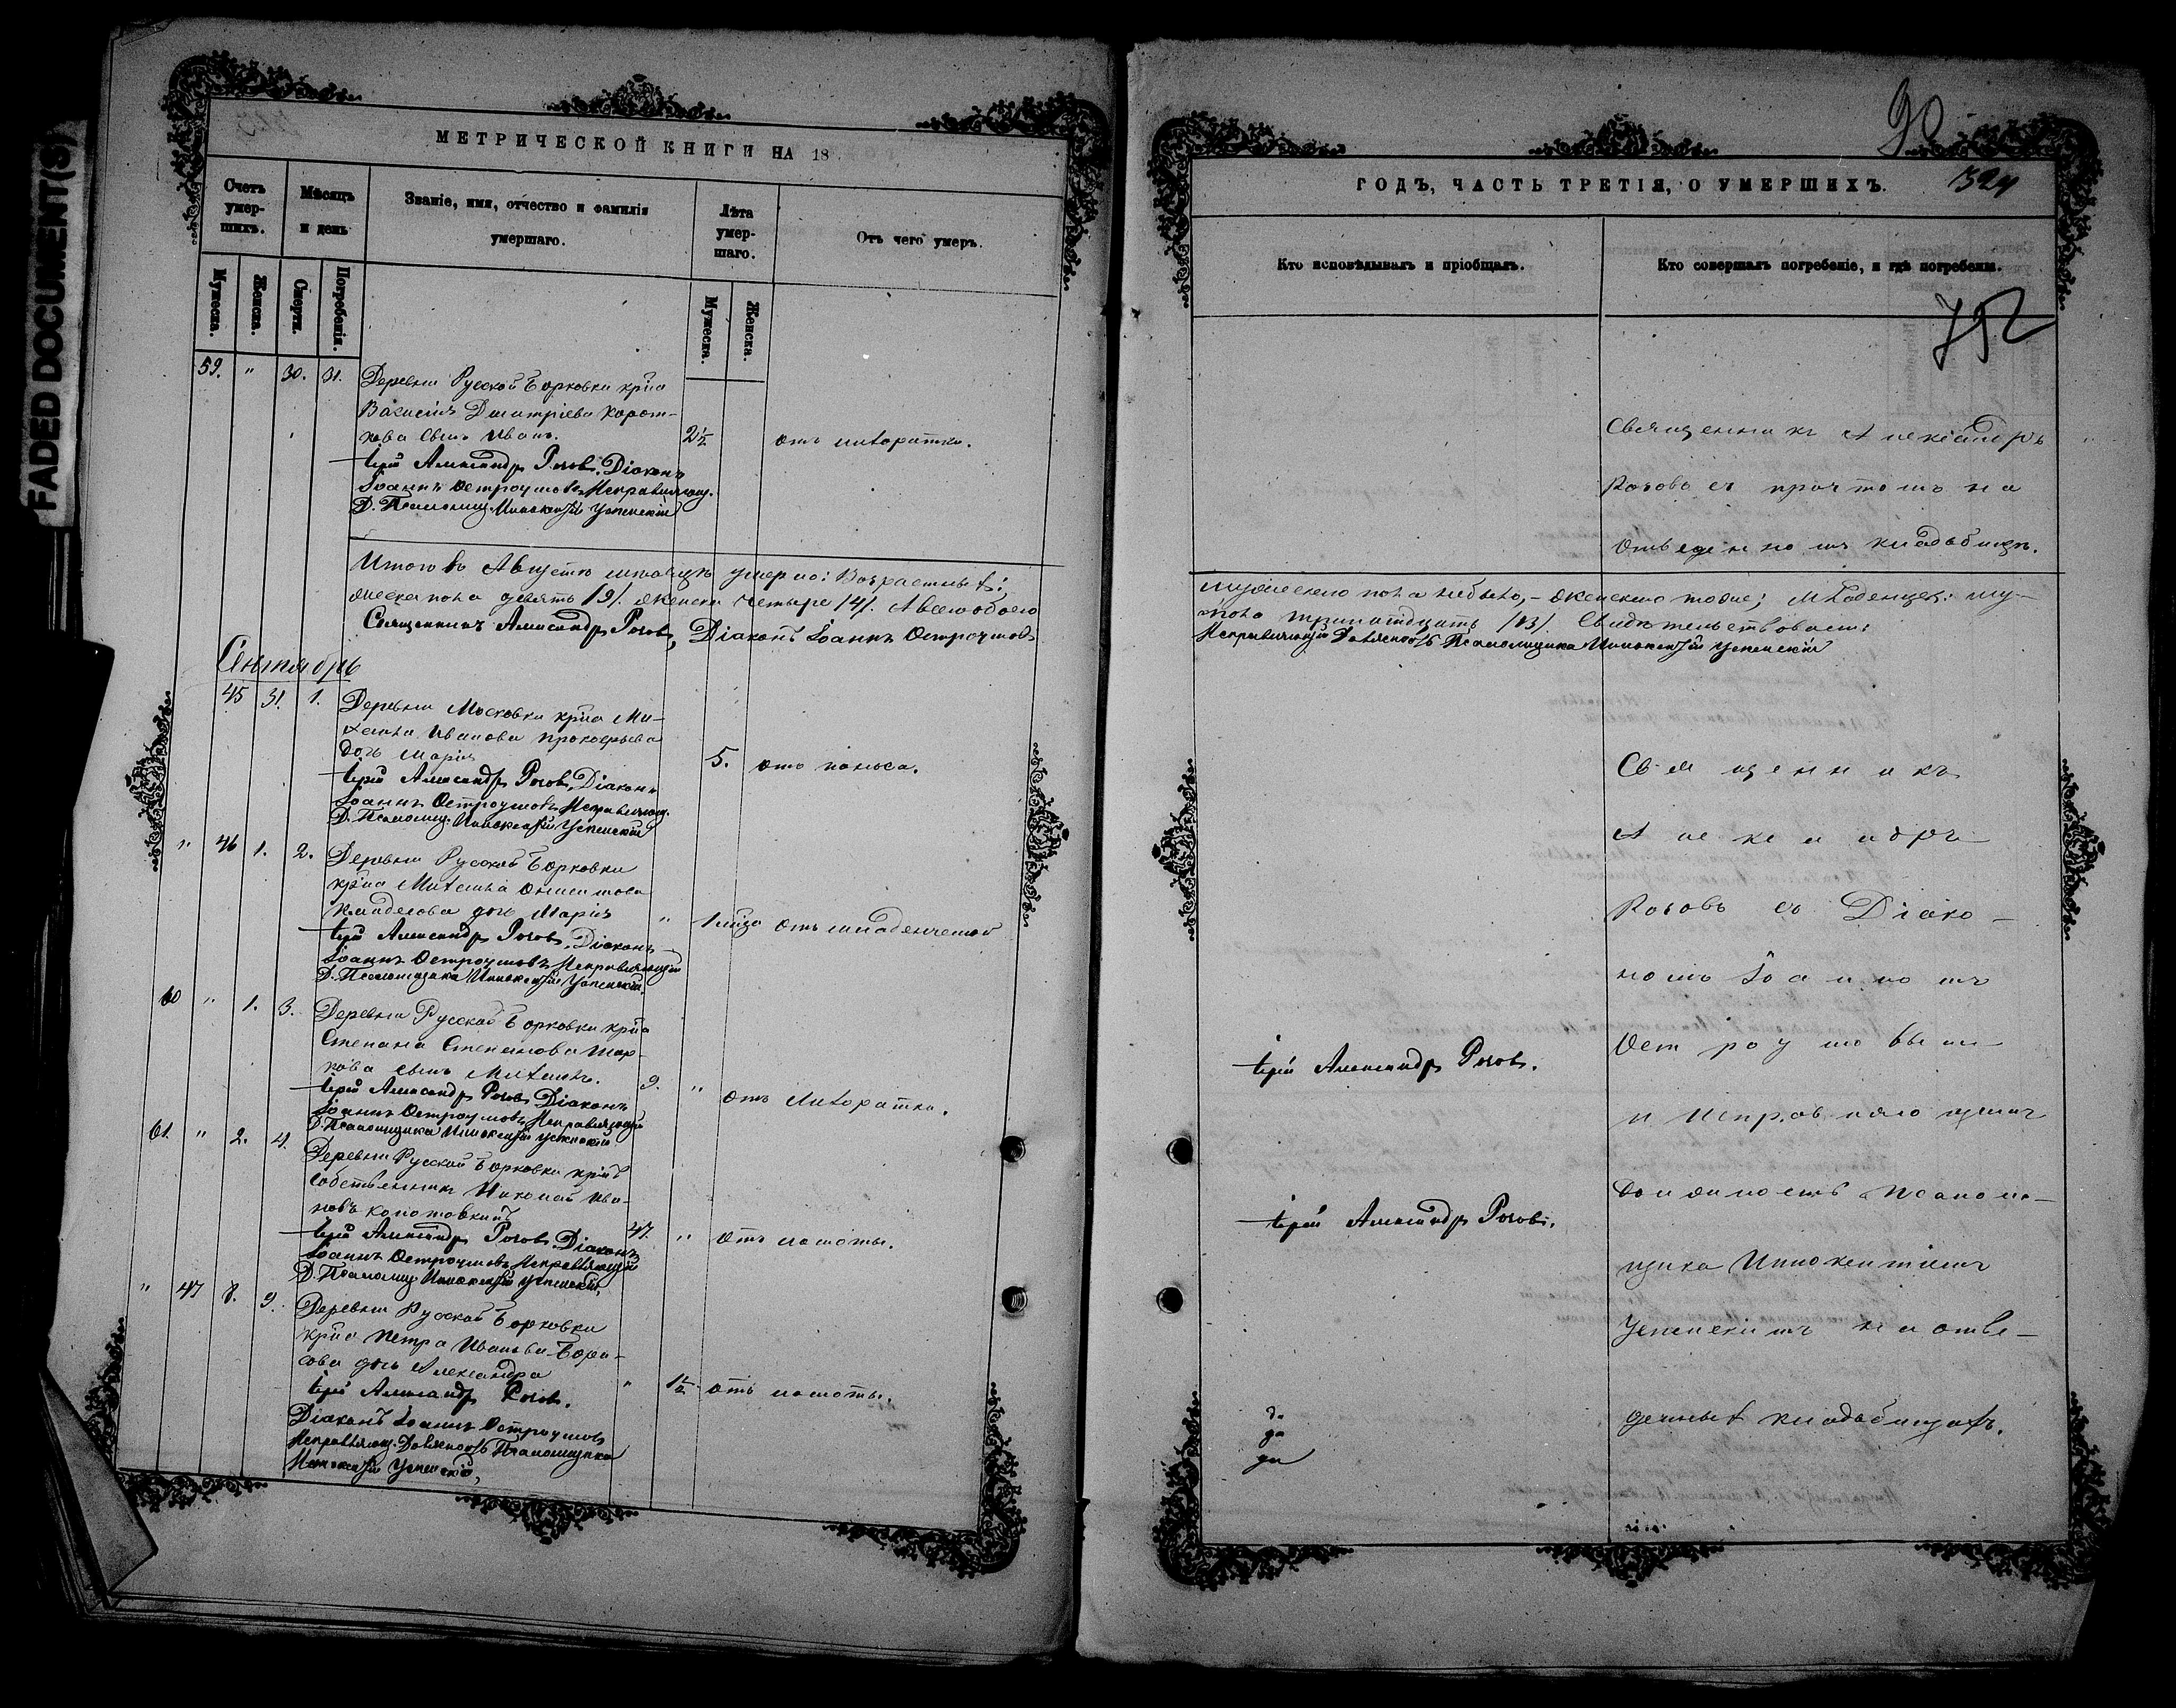 FADED DOCUMENT(S)
МЕТРИЧЕСКОЙ КНИГИ НА 18
Счетъ умер-шихъ.
Мѣсяцъ и день
Званіе, имя, отчество и фамилія умершаго.
Лѣта умер-шаго.
Отъ чего умеръ.
Мужеска.
Женска.
Смерти.
Погребенія.
Мужеска.
Женска.
59. " 30. 31.
Деревни Русской Борковки кр҃на
Василія Дмитріева Корот-
кова сынъ Иванъ.
2½
отъ лихоратки.
Іерей Александръ Роговъ, Діаконъ
Іоаннъ Остроумовъ, Исправляющ.
Д. Псаломщ. Иннокентій Успенскій
Итого въ Августѣ мѣсяцѣ умерло: Возрастныхъ:
жеска пола девять /9/. женска четыре /4/. А всего обоего
Священникъ Александръ Роговъ, Діаконъ Іоаннъ Остроумовъ
Сентябрь
45 31. 1.
Деревни Московки кр҃на Ми-
хаила Иванова Прокофьева
дочь Марія
5.
отъ поноса.
Іерей Александръ Роговъ, Діаконъ
Іоаннъ Остроумовъ, Исправляющ.
Д. Псаломщ. Иннокентій Успенскій
" 46 1. 2.
Деревни Русской Борковки
кр҃на Михаила
дочь Марія
"
отъ младенческой
Іерей Александръ Роговъ, Діаконъ
Іоаннъ Остроумовъ, Исправляющій
Д. Псаломщика Иннокентій Успенскій.
60 " 1. 3.
Деревни Русской Борковки кр҃на
Степана Степанова
сынъ Михаилъ.
9. "
отъ лихоратки.
Іерей Александръ Роговъ, Діаконъ
Іоаннъ Остроумовъ, Исправляющій
Д. Псаломщика Иннокентій Успенскій
61. " 2. 4.
Деревни Русской Борковки кр҃нъ
собственникъ Николай Ива-
новъ
47. "
Іерей Александръ Роговъ, Діаконъ
Іоаннъ Остроумовъ, Исправляющій
Д. Псаломщ. Иннокентій Успенскій,
" 47 8. 9.
Деревни Русской Борковки
кр҃на Петра Иванова Бори-
сова дочь Александра
" 1½
Іерей Александръ Роговъ.
Діаконъ Іоаннъ Остроумовъ
Исправляющ. Должность Псаломщика
Иннокентій Успенскій,
90
324
ГОДЪ, ЧАСТЬ ТРЕТІЯ, О УМЕРШИХЪ.
Кто исповѣдывалъ и пріобщалъ.
Кто совершалъ погребеніе, и гдѣ погребены.
752
Священникъ Александръ
Роговъ съ причтомъ на
отведенномъ кладбищѣ.
мужескаго пола небыло, – женскаго тоже; Младенцевъ: му-
пола тринадцать /13/. Свидѣтельствовали:
Исправляющій Должность Псаломщика Иннокентій Успенскій
Священникъ
Александръ
Роговъ съ Діако-
номъ Іоанномъ
Остроумовымъ
Іерей Александръ Роговъ.
и Исправляющимъ
должность Псалом-
Іерей Александръ Роговъ.
щика Иннокентіемъ
Успенскимъ на отве-
денныхъ кладбищахъ.